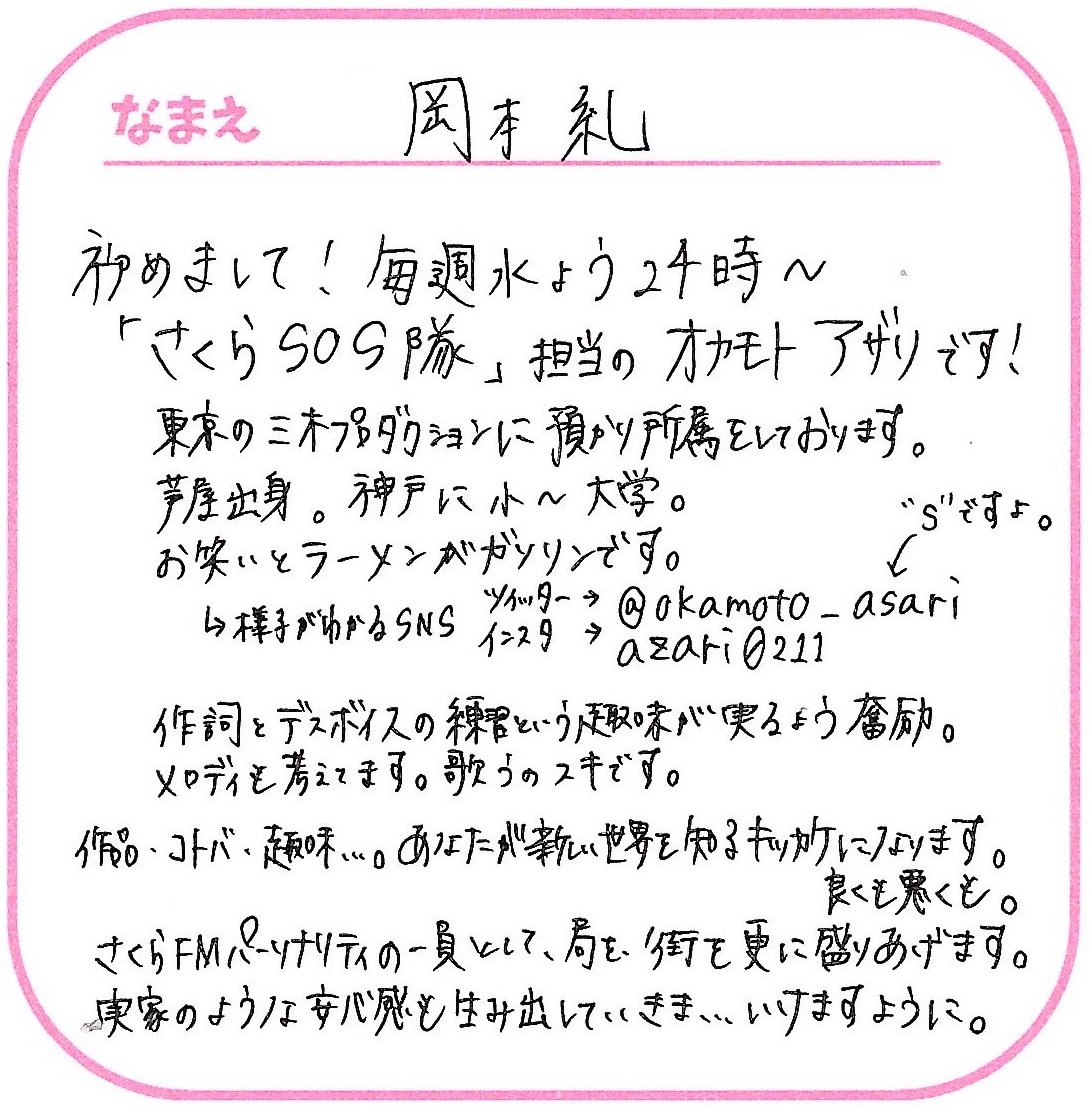 なまえ 岡本 糺
初めまして！毎週水よう24時～
「さくらSOS隊」担当の オカモト アザリです！
東京の三木プロダクションに預かり所属をしております。
芦屋出身。神戸に小～大学。
"S"ですよ。
お笑いとラーメンがガソリンです。
↳様子がわかるSNS ツイッター→ @okamoto_asari
インスタ → azari0211
作詞とデスボイスの練習という趣味が実るよう奮励。
メロディも考えてます。歌うのスキです。
作品・コトバ・趣味…。あなたが新しい世界を知るキッカケになります。
良くも悪くも。
さくらFMパーソナリティの一員として、局を、街を更に盛りあげます。
実家のような安心感も生み出していきま…いけますように。